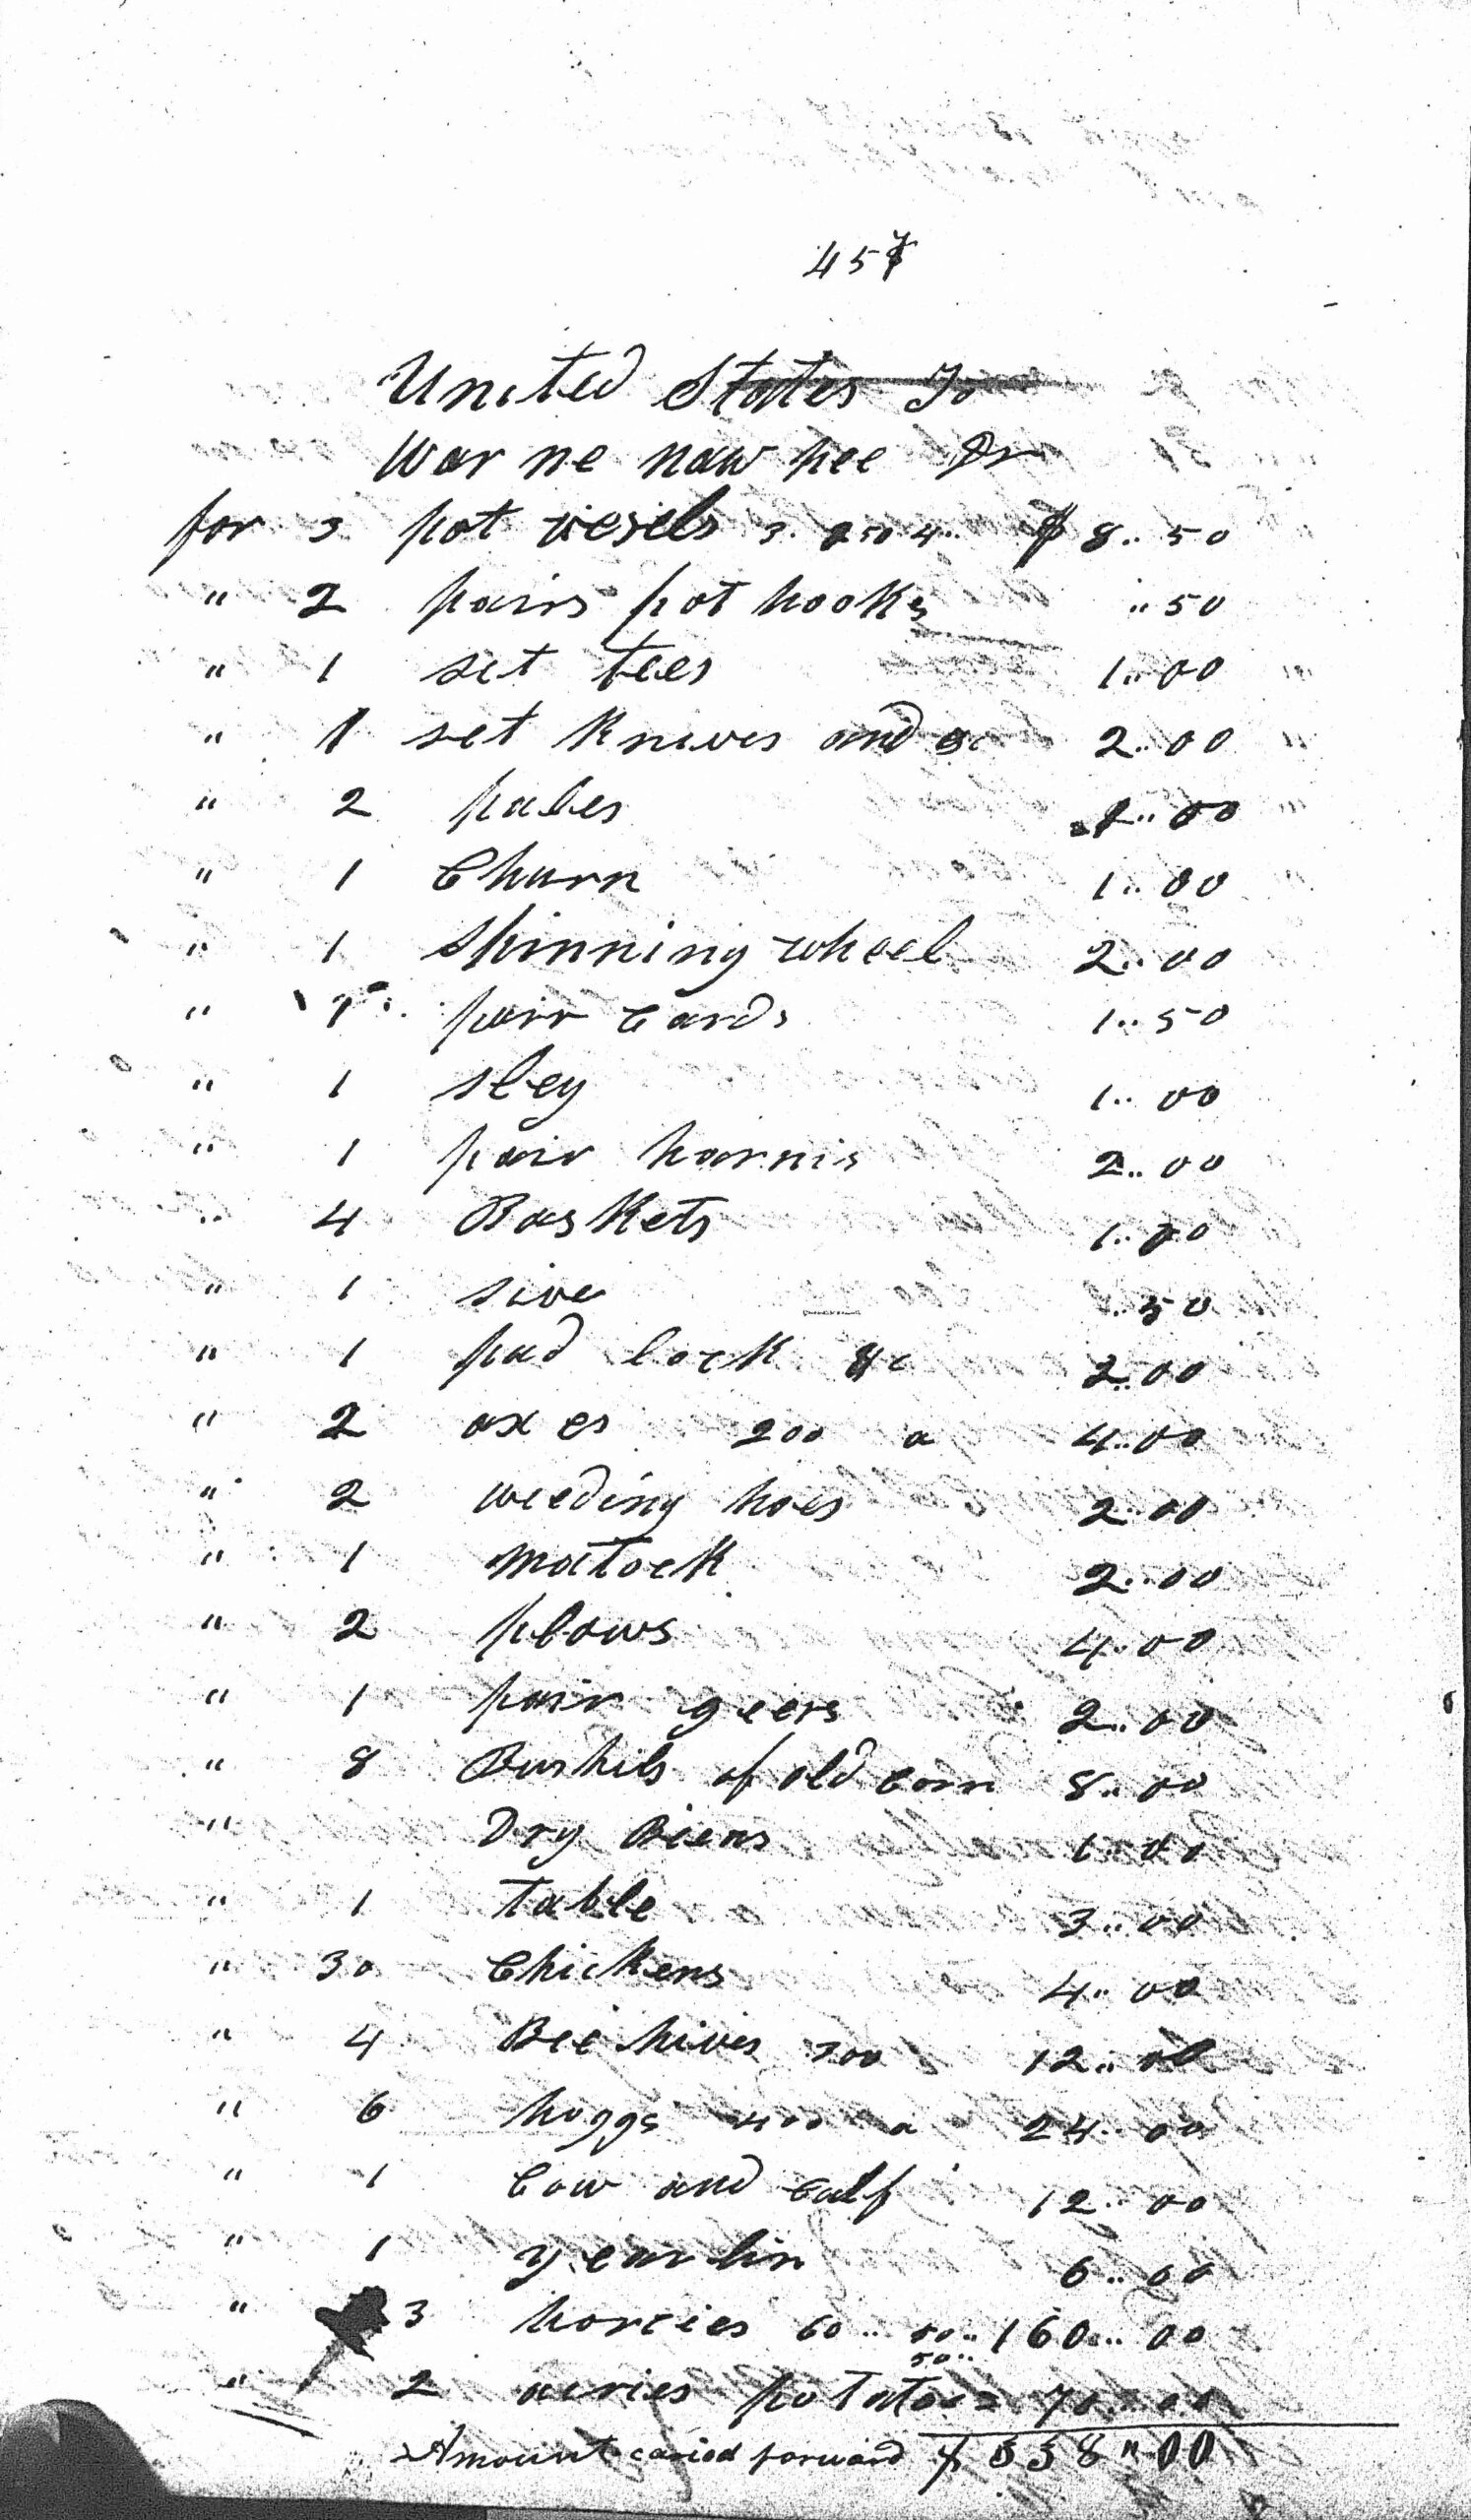 457
United States To
War ne naw hee Dr
for 3 pot vesels 3. 250 4.. $ 8.. 50
" 2 pairs pot hooks .. 50
" 1 set tees 1.. 00
" 1 set Knives and &c 2.. 00
" 2 pales 1.. 00
" 1 Churn 1.. 00
" 1 Spinning wheel 2.. 00
" 1 pair Cards 1.. 50
" 1 sley 1.. 00
" 1 pair harnis 2.. 00
" 4 Baskets 1.. 00
" 1 sive .. 50
" 1 pad lock &c 2.. 00
" 2 axes 200 a 4.. 00
" 2 weeding hoes 2.. 00
" 1 matock 2.. 00
" 2 plows 4.. 00
" 1 pair geers 2.. 00
" 8 Bushils of old corn 8.. 00
" Dry Biens 1.. 00
" 1 table 3.. 00
" 30 Chickens 4.. 00
" 4 Bee hives 300 12.. 00
" 6 hoggs 400 a 24.. 00
" 1 Cow and Calf 12.. 00
" 1 yearlin 6.. 00
" 3 horcies 60.. 50.. 160.. 00
50..
" 2 acries potatoes 70.. 00
Amount caried forward $ 338 " 00